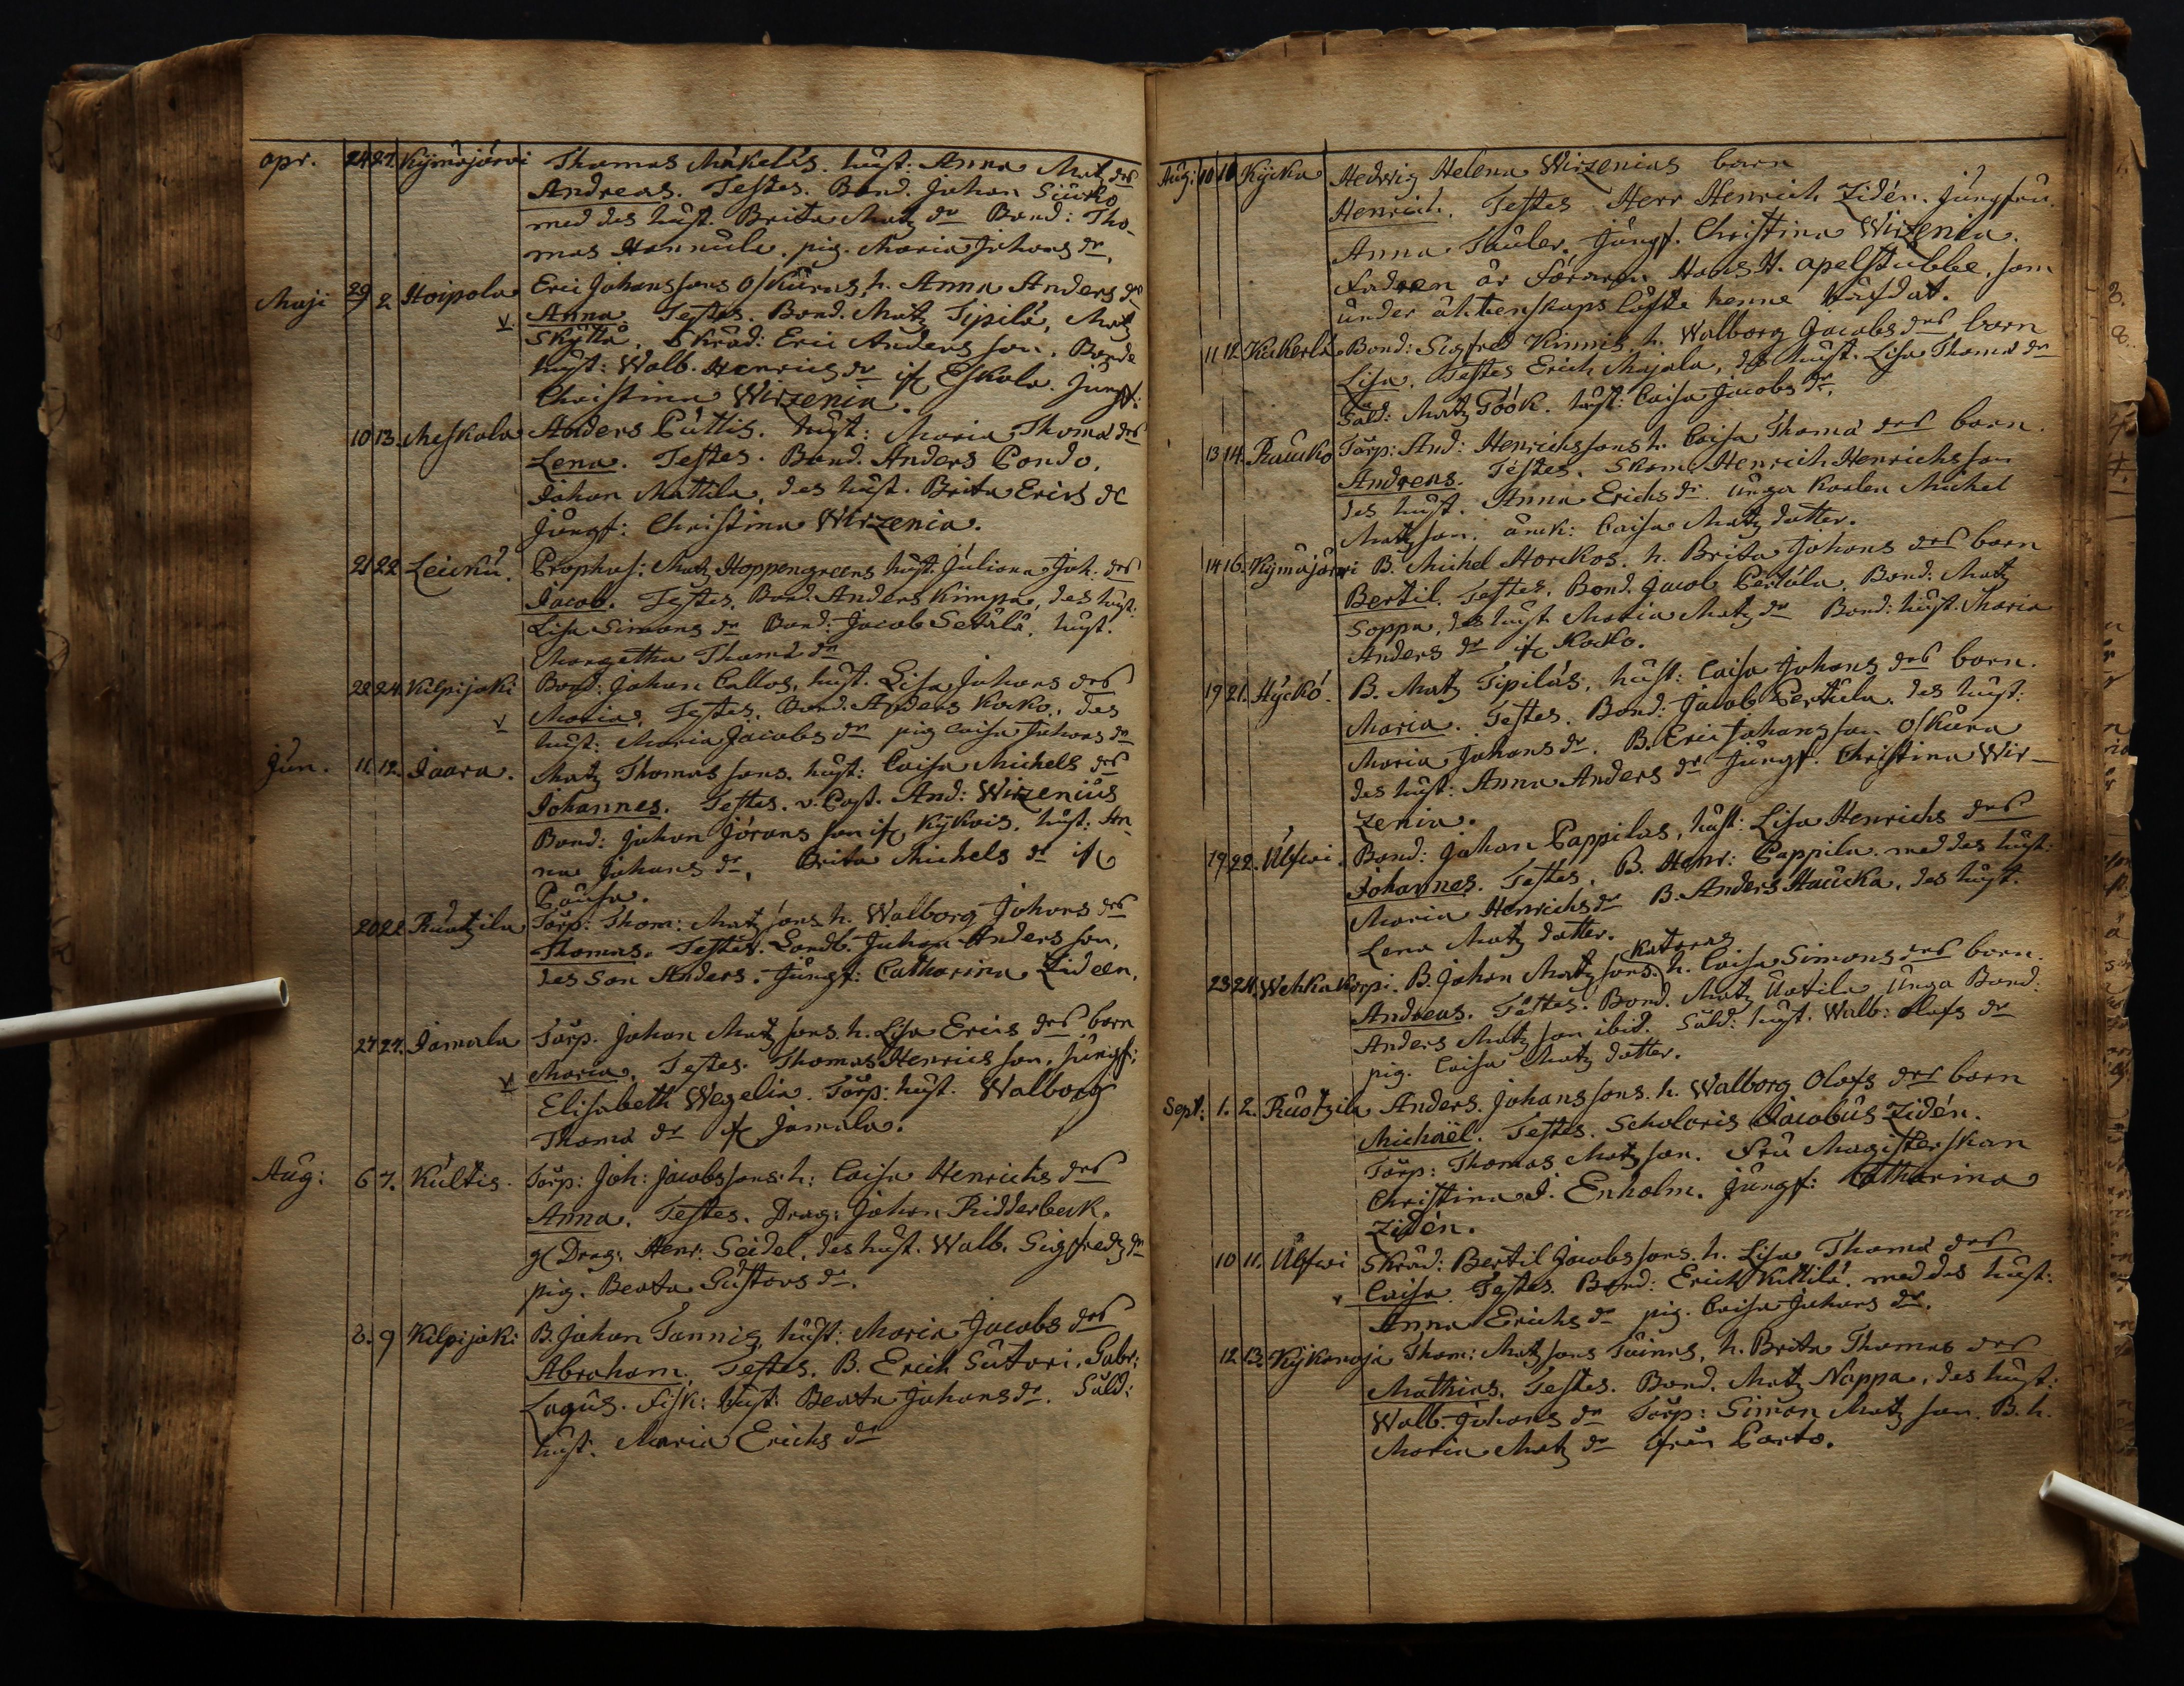 apr. 24 27. Kÿmäjärvi Thomas Mäkeläs. hust: Anna Matz drs
Andreas. Testes. Bond. Johan Siurko
med des hust. Brita Matz dr Bond: Tho-
mas Hannula. pig. Maria Johans dr.
Maji 29 2 Hoipola Eric Johanssons Oskuras, h. Anna Anders drs
v. Anna. Testes. Bond. Matz Sipilä, Matz
Skÿttä. Skräd: Eric Andersson. Bonde
hust: Walb. Henrics dr if Eskola. Jungf:
Christina Wirzenia.
10 13. Meskala Anders Puttis. hust: Maria Thoma drs
Lena. Testes. Bond. Anders Pondo.
Johan Mattila, des hust. Brita Erics dr
Jungf: Christina Wirzenia.
21 22. Leickü. Prophos: Matz Hoppengreens hust. Juliana Joh. drs
Jacob. Testes. Bond. Anders Kimpa, des hust.
Lisa Simons dr Bond: Jacob Setälä. hust.
Margetha Thoma dr
22 24. Kilpijoki Bond: Johan Callos, hust. Lisa Johans drs
v Maria. Testes. Bond. Anders Kocko. des
hust: Maria Jacobs dr pig Caisa Johans dr
Jun. 11 12. Jaara. Matz Thomassons. hust: Caisa Michels drs
Johannes. Testes. v. Past. And: Wirzenius
Bond: Johan Jöransson if Kÿkois. hust: An-
na Johans dr. Brita Michels dr if
Pausa.
20 22 Ruotzila Torp: Thom: Matzsons h. Walborg Johans drs
Thomas. Testes. Landb. Johan Andersson,
des son Anders. Jungf: Catharina Zideen.
27 27. Jamala Torp. Johan Matzsons. h. Lisa Erics drs barn
v Maria. Testes. Thomas Henricsson. Jungf:
Elisabeth Wegelia. Torp: hust. Walborg
Thoma dr if Jamala.
Aug: 6 7. Kultis. Torp: Joh: Jacobssons. h: Caisa Henrichs drs
Anna. Testes. Drag: Johan Ridderbeck.
Drag: Henr: Seidel. des hust. Walb. Sigfredz dr
pig. Beata Gustavs dr.
8. 9 Kilpijoki B. Johan Tannis, hust: Maria Jacobs drs
Abraham. Testes. B. Erich Sutari. Gabr:
Lagus. Fisk: hust: Beata Johans dr. Sold:
hust. Maria Erichs dr
Aug: 10 10 Kÿcka Hedwig Helena Wirzenias barn
Henrich. Testes Herr Henrich Zidén. Jungfru.
Anna Tauler. Jungf. Christina Wirzenia.
Fadren är Föraren Hans H. apelstubbe, som
under ächtenskaps löfte henne häfdat.
11 12. Kukerla Bond: Sigfred Kinnis h. Walborg Jacobs drs barn
Lisa. Testes Erich Majala, ds hust. Lisa Thoma dr
Sold: Matz Töök. hust: Caisa Jacobs dr.
13 14. Raucko Torp: And: Henrichssons h. Caisa Thoma drs barn.
Andreas. Testes. Skom: Henrich Henrichsson
des hust. Anna Erichs dr. unga Karlen Michel
Matzson. änck: Caisa Matz dotter.
14 16. Kÿmäjärwi B. Michel Horckos. h. Brita Johans drs barn
Bertil. Testes. Bond. Jacob Pertula. Bond: Matz
Soppa, des hust. Maria Matz dr Bond: hust. Maria
Anders dr if Kocko.
19 21. Hÿckö. B. Matz Sipiläs. hust: Caisa Johans drs barn.
Maria. Testes. Bond: Jacob Pertula. des hust:
Maria Johans dr. B. Eric Johansson Oskura
des hust: Anna Anders dr Jungf. Christina Wir-
zenia.
19 22. Ulfwi. Bond: Johan Pappilas, hust: Lisa Henrichs drs
Johannes. Testes. B. Henr: Pappila. med des hust:
Maria Henrichs dr B. Anders Haucka. des hust.
Lena Matz dotter.
23 24. Wehkakorpi. B. Johan Matzsons Kataras. h. Caisa Simons drs barn.
Andreas. Testes. Bond. Matz Uotila. Unga Bond:
Anders Matzson ibid. Sold: hust. Walb: Olofs dr
pig. Caisa Matz dotter.
Sept: 1. 2. Ruotzila Anders. Johanssons. h. Walborg Olofs drs barn
Michaël. Testes. Scholaris Jacobus Zidén.
Torp: Thomas Matzson. Fru Magisterskan
Christina J. Enholm. Jungf: Catharina
Zidén.
10 11. Ulfwi Skräd: Bertil Jacobssons. h. Lisa Thoma drs
v Caisa. Testes. Bond: Erich Kittilä. med des hust:
Anna Erichs dr pig. Caisa Johans dr.
12 13. Kÿkonoja Thom: Matzsons Tuimas, h. Brita Thomas drs
Mathias. Testes. Bond. Matz Nappa. des hust:
Walb. Johans dr Torp: Simon Matzson. B. h.
Maria Matz dr ifrån Parto.